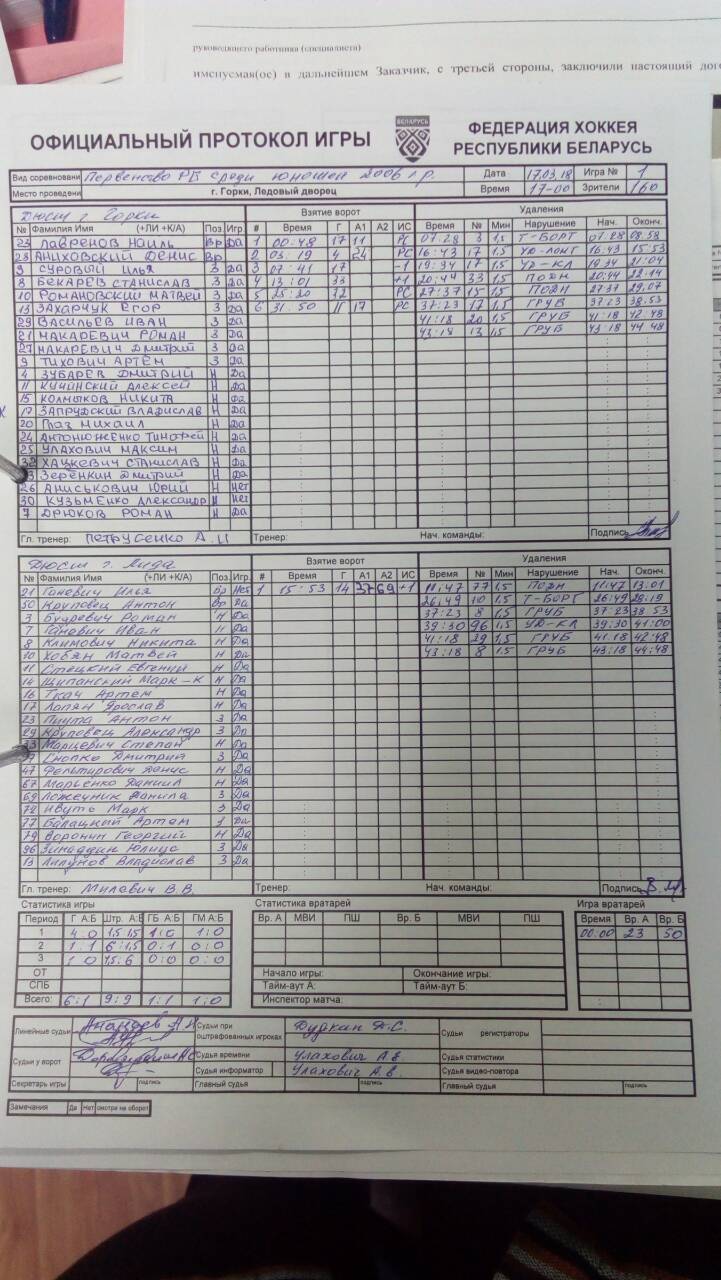 руководящего работника (специалиста)
именуемая(ое) в дальнейшем Заказчик, с третьей стороны, заключили настоящий дого
ОФИЦИАЛЬНЫЙ ПРОТОКОЛ ИГРЫ
БЕЛАРУСЬ
ФЕДЕРАЦИЯ ХОККЕЯ
РЕСПУБЛИКИ БЕЛАРУСЬ
Вид соревновани Первенство РБ среди юношей 2006 г.р. Дата 17.03.18 Игра № 1
Место проведени г. Горки, Ледовый дворец Время 17-00 Зрители 160
ДЮСШ г. Горки Взятие ворот Удаления
№ Фамилия Имя (+ЛИ +К/А) Поз. Игр. # Время Г А1 А2 ИС Время № Мин Нарушение Нач. Оконч.
23 ЛАВРЕНОВ НАИЛЬ Вр Да 1 00:48 17 11 РС 07:28 3 1,5 Т-БОРТ 07:28 08:58
28 АНИХОВСКИЙ ДЕНИС Вр 2 03:19 4 24 РС 16:43 17 1,5 16:43 15:53
СУРОВЫЙ ИЛЬЯ З Да 3 07:41 17 -1 19:34 17 1,5 УД-КЛ 19:34 21:04
8 БЕКАРЕВ СТАНИСЛАВ З Да 4 13:01 33 +1 20:44 33 1,5 ПОДН 20:44 22:14
10 РОМАНОВСКИЙ МАТВЕЙ З Да 5 25:20 72 РС 27:37 15 1,5 ПОДН 27:37 29:07
13 ЗАХАРЧУК ЕГОР З Да 6 31:50 11 17 РС 37:23 17 1,5 ГРУБ 37:23 38:53
29 ВАСИЛЬЕВ ИВАН З Да 41:18 20 1,5 ГРУБ 41:18 42:48
21 МАКАРЕВИЧ РОМАН З Да 43:18 13 1,5 ГРУБ 43:18 44:48
27 МАКАРЕВИЧ ДМИТРИЙ З Да
9 ТИХОВИЧ АРТЁМ З Да
4 ЗУБАРЕВ ДМИТРИЙ Н Да
11 КУЧИНСКИЙ АЛЕКСЕЙ Н Да
15 КОЛМЫКОВ НИКИТА Н Да
17 ЗАПРУДСКИЙ ВЛАДИСЛАВ Н Да
20 ГЛАЗ МИХАИЛ Н Да
24 АНТОНЮЖЕНКО ТИМОФЕЙ Н Да
25 УЛАХОВИЧ МАКСИМ Н Да
32 ХАЦКЕВИЧ СТАНИСЛАВ Н Да
ЗЕРЕНКИН ДМИТРИЙ Н Да
26 АНИСЬКОВИЧ ЮРИЙ Н Нет
30 КУЗЬМЕНКО АЛЕКСАНДР Н Нет
7 ДРЮКОВ РОМАН Н Да
Гл. тренер: ПЕТРУСЕНКО А.И Тренер: Нач. команды: Подпись
ДЮСШ г. Лида Взятие ворот Удаления
№ Фамилия Имя (+ЛИ +К/А) Поз. Игр. # Время Г А1 А2 ИС Время № Мин Нарушение Нач. Оконч.
Ганевич Илья Вр Нет 1 15:53 14 37 69 +1 11:47 77 1,5 ПОДН 11:47 13:01
50 Круповец Антон Вр Да 26:49 10 1,5 Т-БОРТ 26:49 28:19
3 Роман Н Да 37:23 8 1,5 ГРУБ 37:23 38:53
7 Ганевич Иван Да 39:30 96 1,5 УД-КЛ 39:30 41:00
8 Климович Никита Н Да 41:18 29 1,5 ГРУБ 41:18 42:48
10 Ховян Матвей Н Да 43:18 8 1,5 ГРУБ 43:18 44:48
11 Евгений Н Да
14 Щипанский Марк-К Н Да
16 Ткач Артем Н Да
17 Лопян Ярослав Н Да
23 Антон З Да
29 Круповец Александр З Да
33 Марцевич Степан Н Да
Снопко Дмитрий З Да
47 Денис Н Да
67 Марьенко Даниил Н Да
69 Данила З Да
72 Ивуть Марк З Да
77 Балацкий Артем Да
79 Воронин Георгий Н Да
96 З Да
13 Владислав З Да
Гл. тренер: Милевич В.В. Тренер: Нач. команды: Подпись
Статистика игры Статистика вратарей Игра вратарей
Период Г А:Б Штр. А:Б ГБ А:Б ГМ А:Б Вр. А МВИ ПШ Вр. Б МВИ ПШ Время Вр. А Вр. Б
1 4:0 1,5:1,5 1:0 1:0 00:00 23 50
2 1:1 6:1,5 0:1 0:0
3 1:0 1,5:6 0:0 0:0
ОТ Начало игры: Окончание игры:
СПБ Тайм-аут А: Тайм-аут Б:
Всего: 6:1 9:9 1:1 1:0 Инспектор матча:
Линейные судьи Судьи при оштрафованных игроках Дудкан А.С. Судьи регистраторы
Судьи у ворот Судья времени Улахович А.В. Судья статистики
Судья информатор Улахович А.В. Судья видео-повтора
Секретарь игры подпись Главный судья подпись Главный судья подпись
Замечания Да Нет смотри на обороте